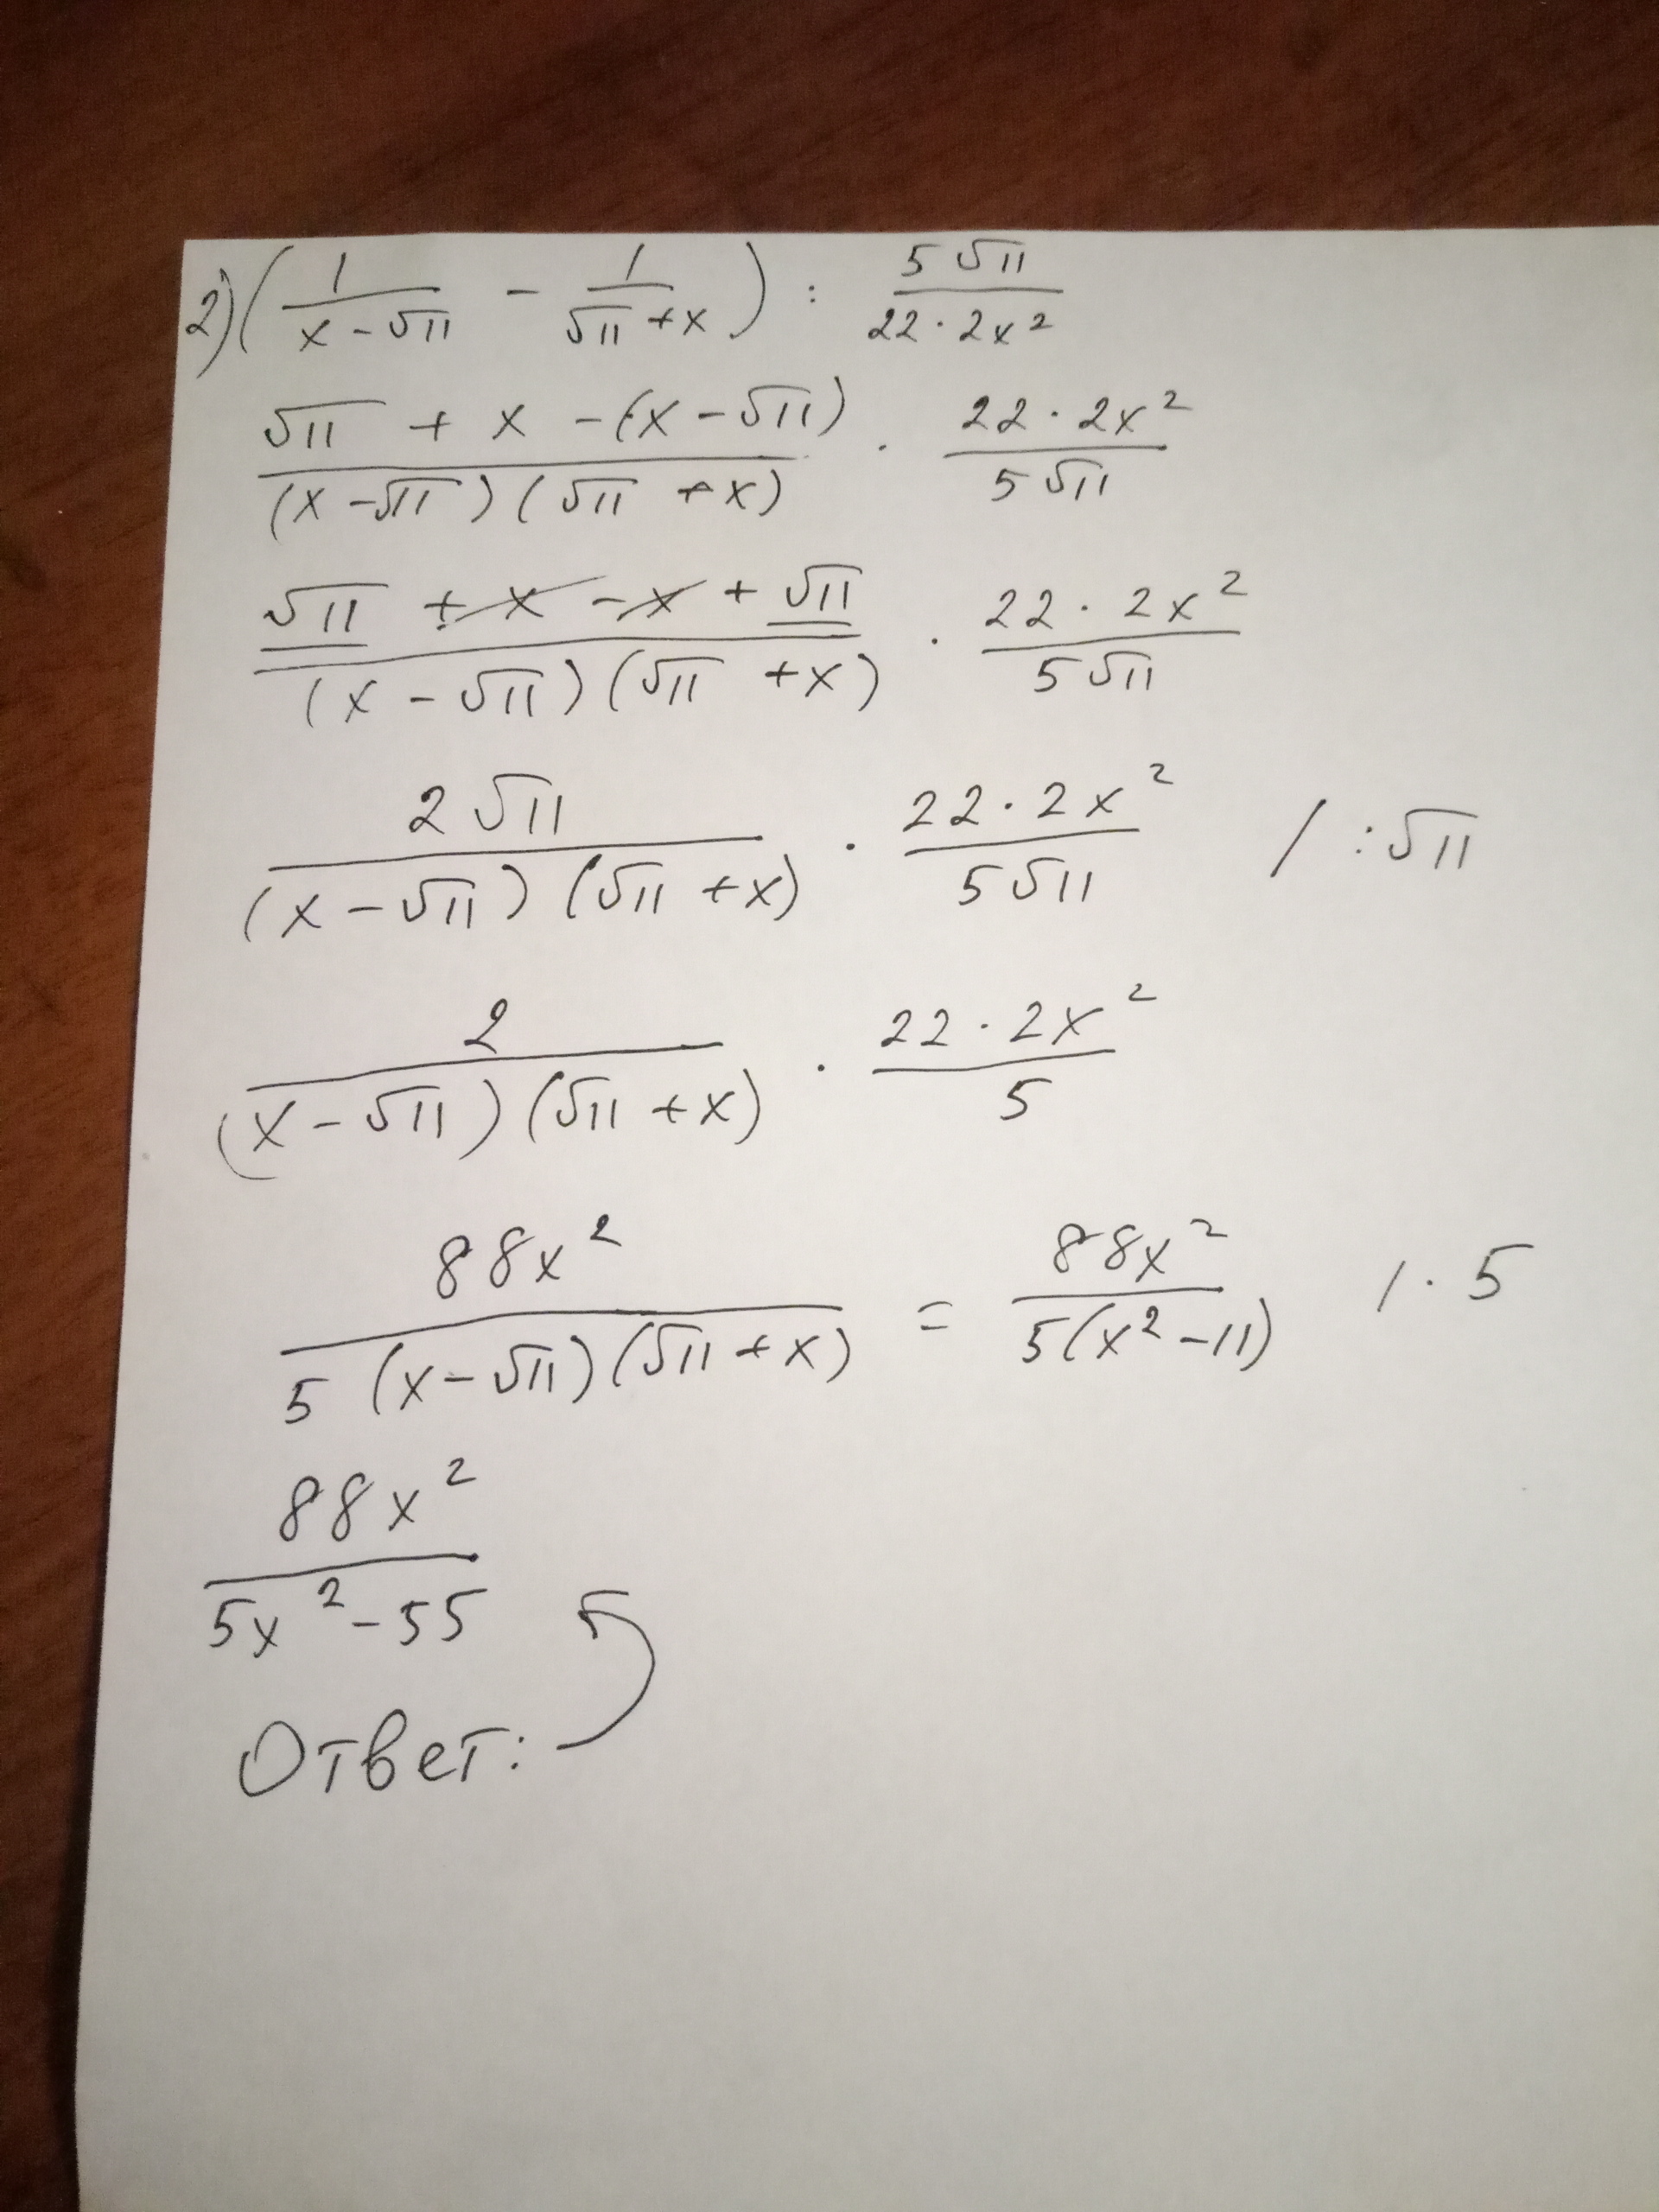 2) (1/(x-√11) - 1/(√11+x)) : 5√11/(22·2x²)
(√11 + x -(x-√11))/((x-√11)(√11+x)) · (22·2x²)/(5√11)
(√11 + x - x + √11)/((x-√11)(√11+x)) · (22·2x²)/(5√11)
2√11/((x-√11)(√11+x)) · (22·2x²)/(5√11) / :√11
2/((x-√11)(√11+x)) · (22·2x²)/5
88x²/(5(x-√11)(√11+x)) = 88x²/(5(x²-11)) / · 5
88x²/(5x²-55)
Ответ: